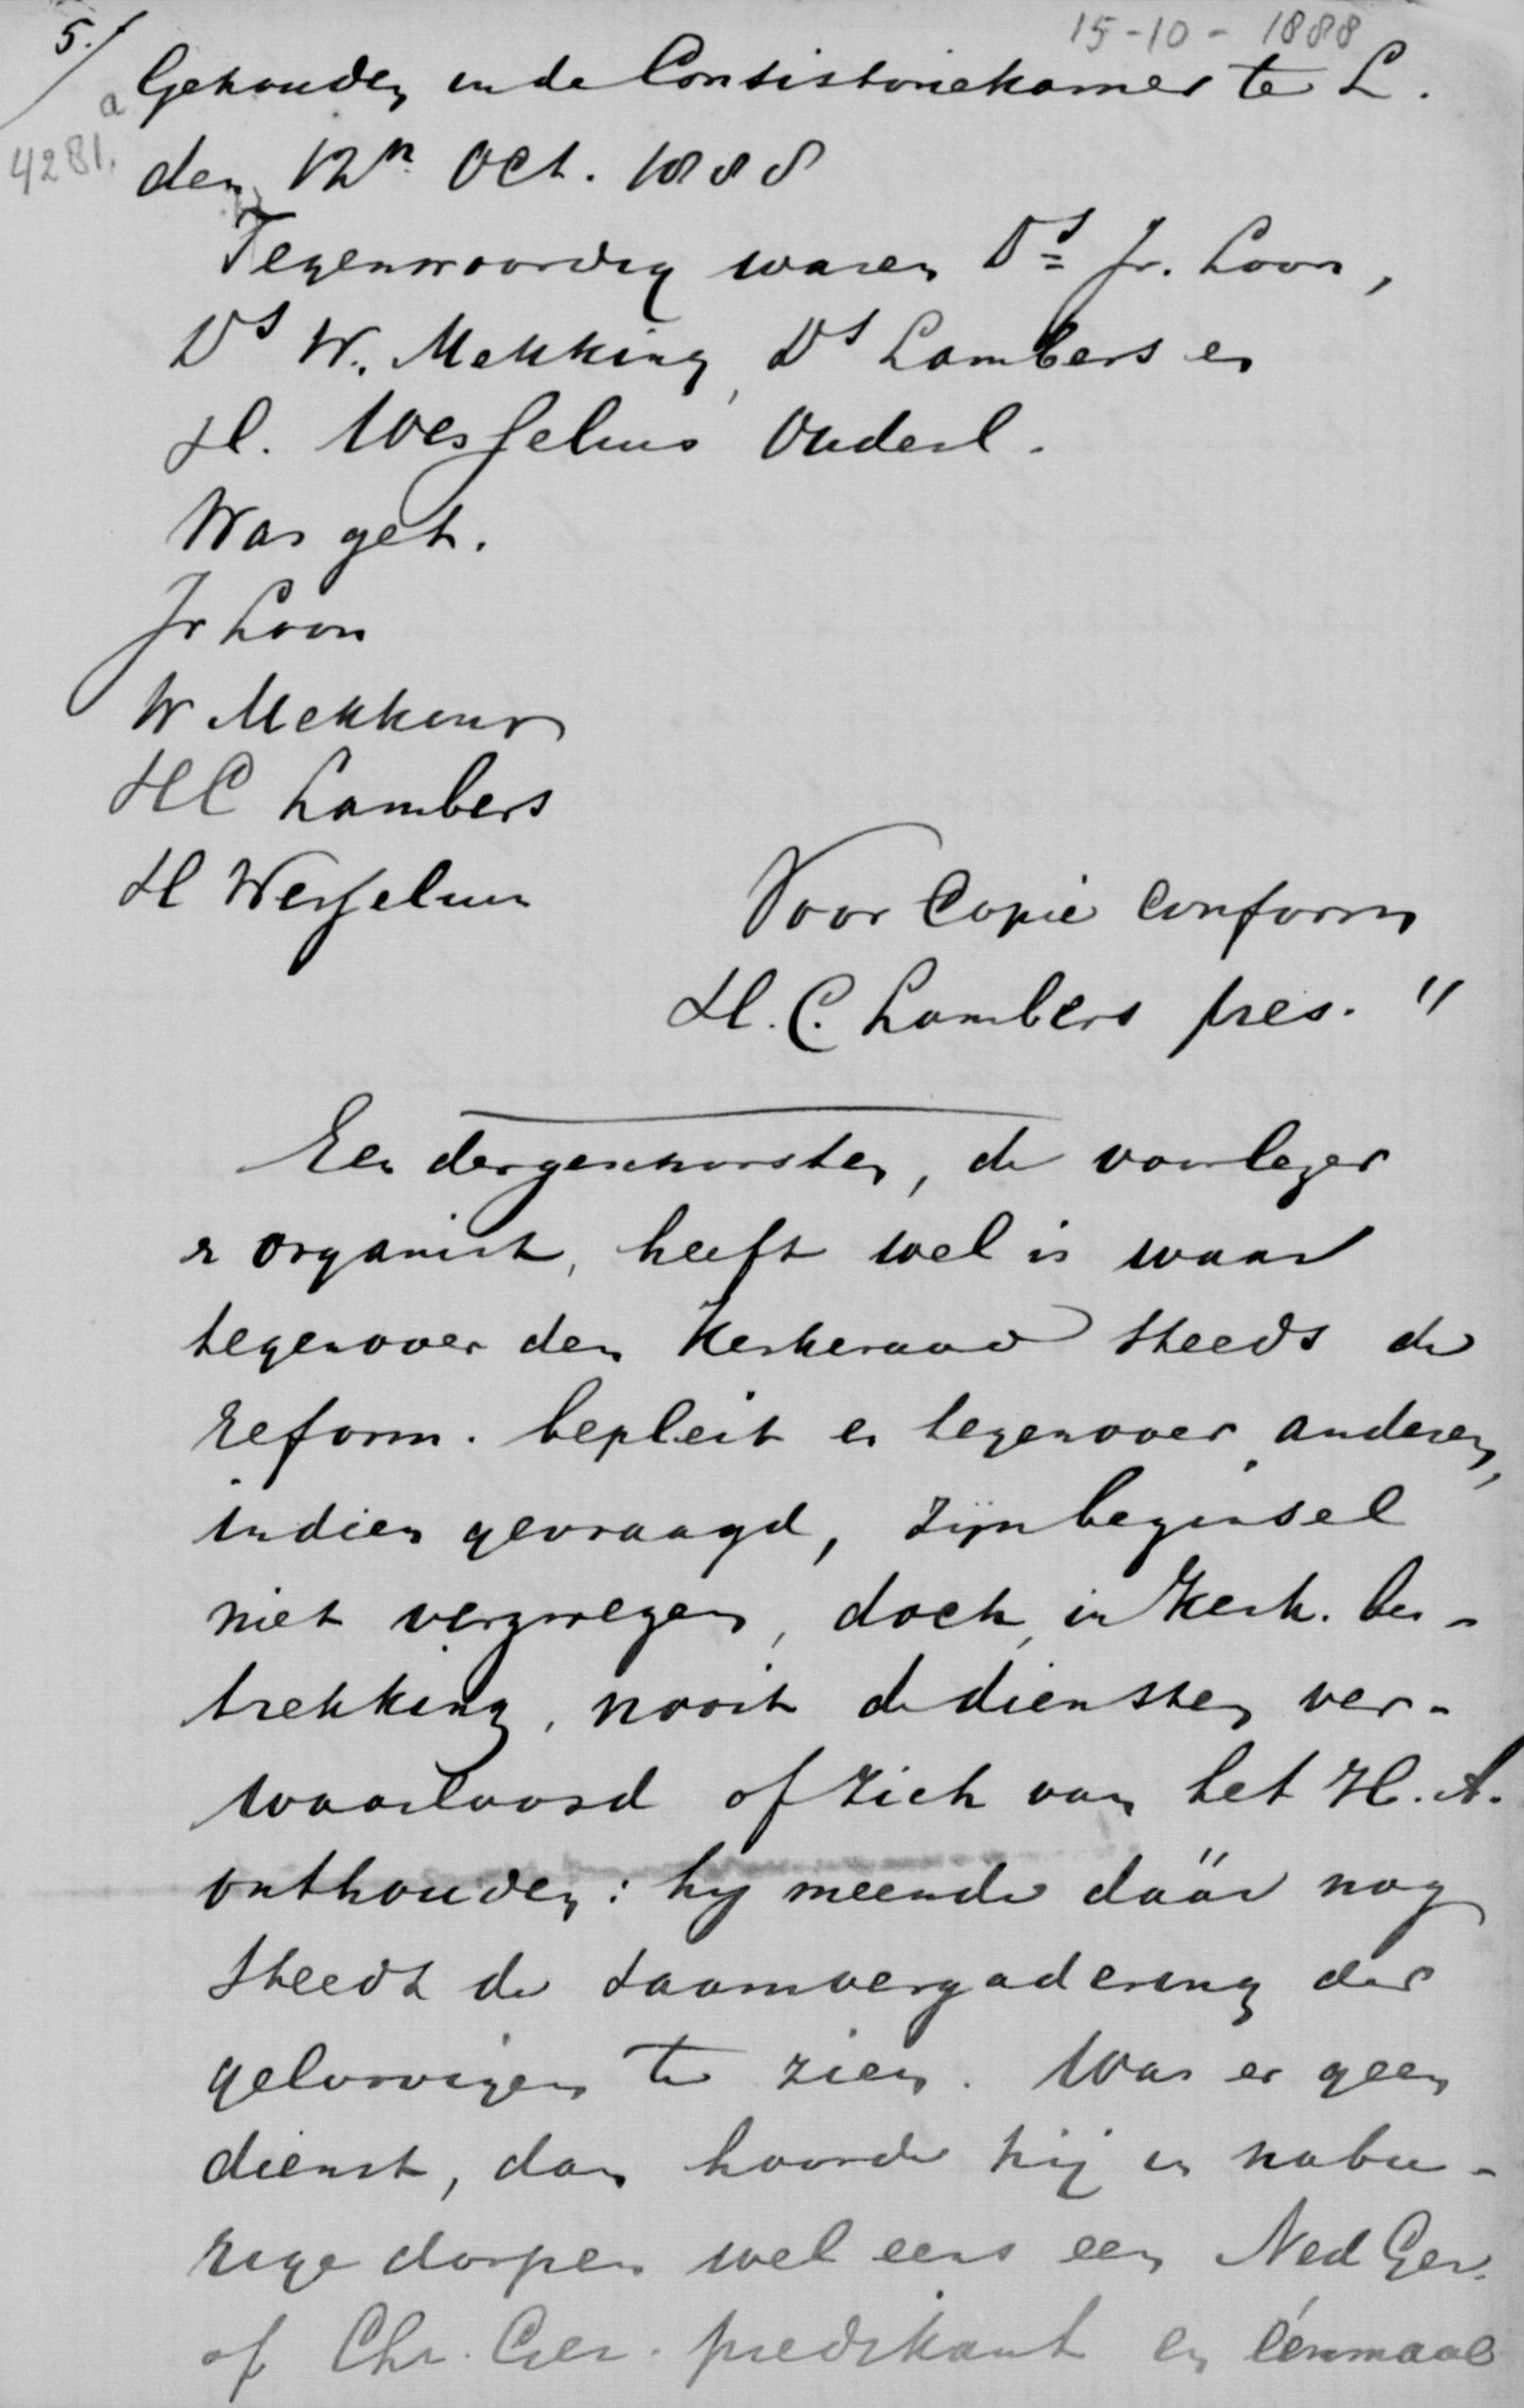 5./
15-10-1888
a
4281.
Gehouden in de Consistoriekamer te L.
den 12n Oct. 1888
Tegenwoordig waren Ds Jr. Loon,
Ds W. Mekking, Ds Lambers en
H. Wesselius Ouderl.
Was get.
Jr Loon
W Mekking
HC Lambers
H Wesselius
Voor Copie Conform
H. C. Lambers pres. "
Een der geschorsten, de voorlezer
& organist, heeft wel is waar
tegenover den Kerkeraad steeds de
reform. bepleit en tegenover anderen,
indien gevraagd, zijn beginsel
niet verzwegen, doch, in Kerk. be-
trekking, nooit de diensten ver-
waarloosd of zich van het H. A.
onthouden: hij meende däär nog
steeds de saamvergadering der
geloovigen te zien. Was er geen
dienst, dan hoorde hij in nabu-
rige dorpen wel eens een Ned Ger.
of Chr. Ger. predikant en éénmaal